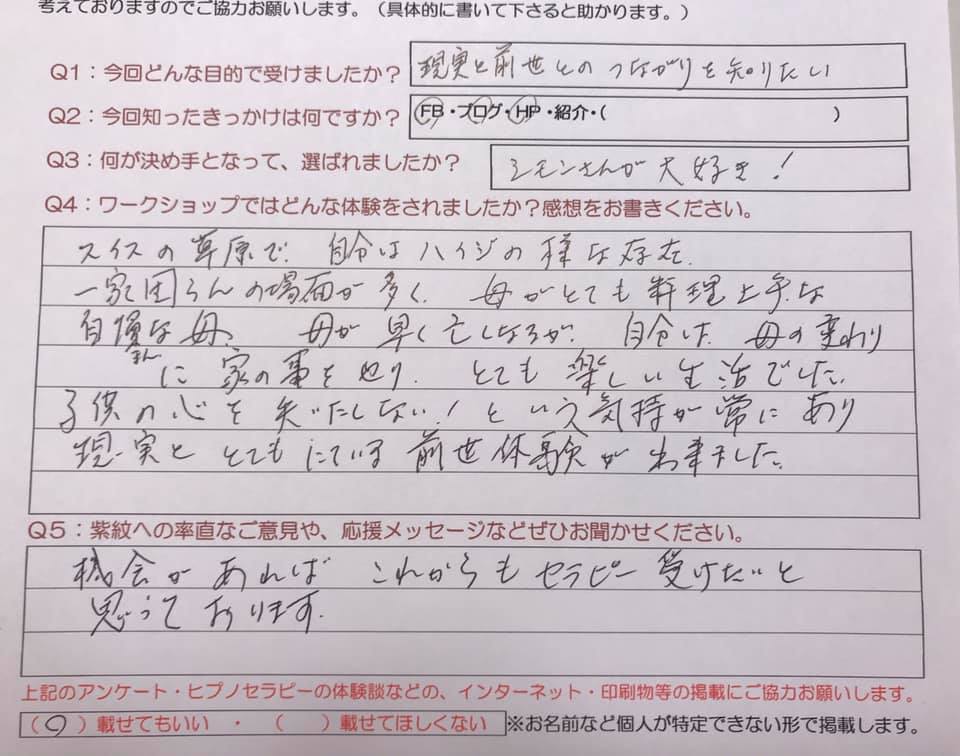 考えておりますのでご協力お願いします。（具体的に書いて下さると助かります。）
Q1：今回どんな目的で受けましたか？ 現実と前世とのつながりを知りたい
Q2：今回知ったきっかけは何ですか？ FB・ブログ・HP・紹介・（ ）
Q3：何が決め手となって、選ばれましたか？ シモンさんが大好き！
Q4：ワークショップではどんな体験をされましたか？感想をお書きください。
スイスの草原で、自分はハイジの様な存在。
一家団らんの場面が多く、母がとても料理上手な
自慢な母、母が早く亡しなるが、自分は、母の変わり
まん
に家の事をやり、とても楽しい生活でした。
子供の心を失いたしない！という気持が常にあり
現実ととてもにている前世体験が出来ました。
Q5：紫紋への率直なご意見や、応援メッセージなどぜひお聞かせください。
機会があればこれからもセラピー受けたいと
思っております。
上記のアンケート・ヒプノセラピーの体験談などの、インターネット・印刷物等の掲載にご協力お願いします。
（○）載せてもいい ・ （ ）載せてほしくない ※お名前など個人が特定できない形で掲載します。